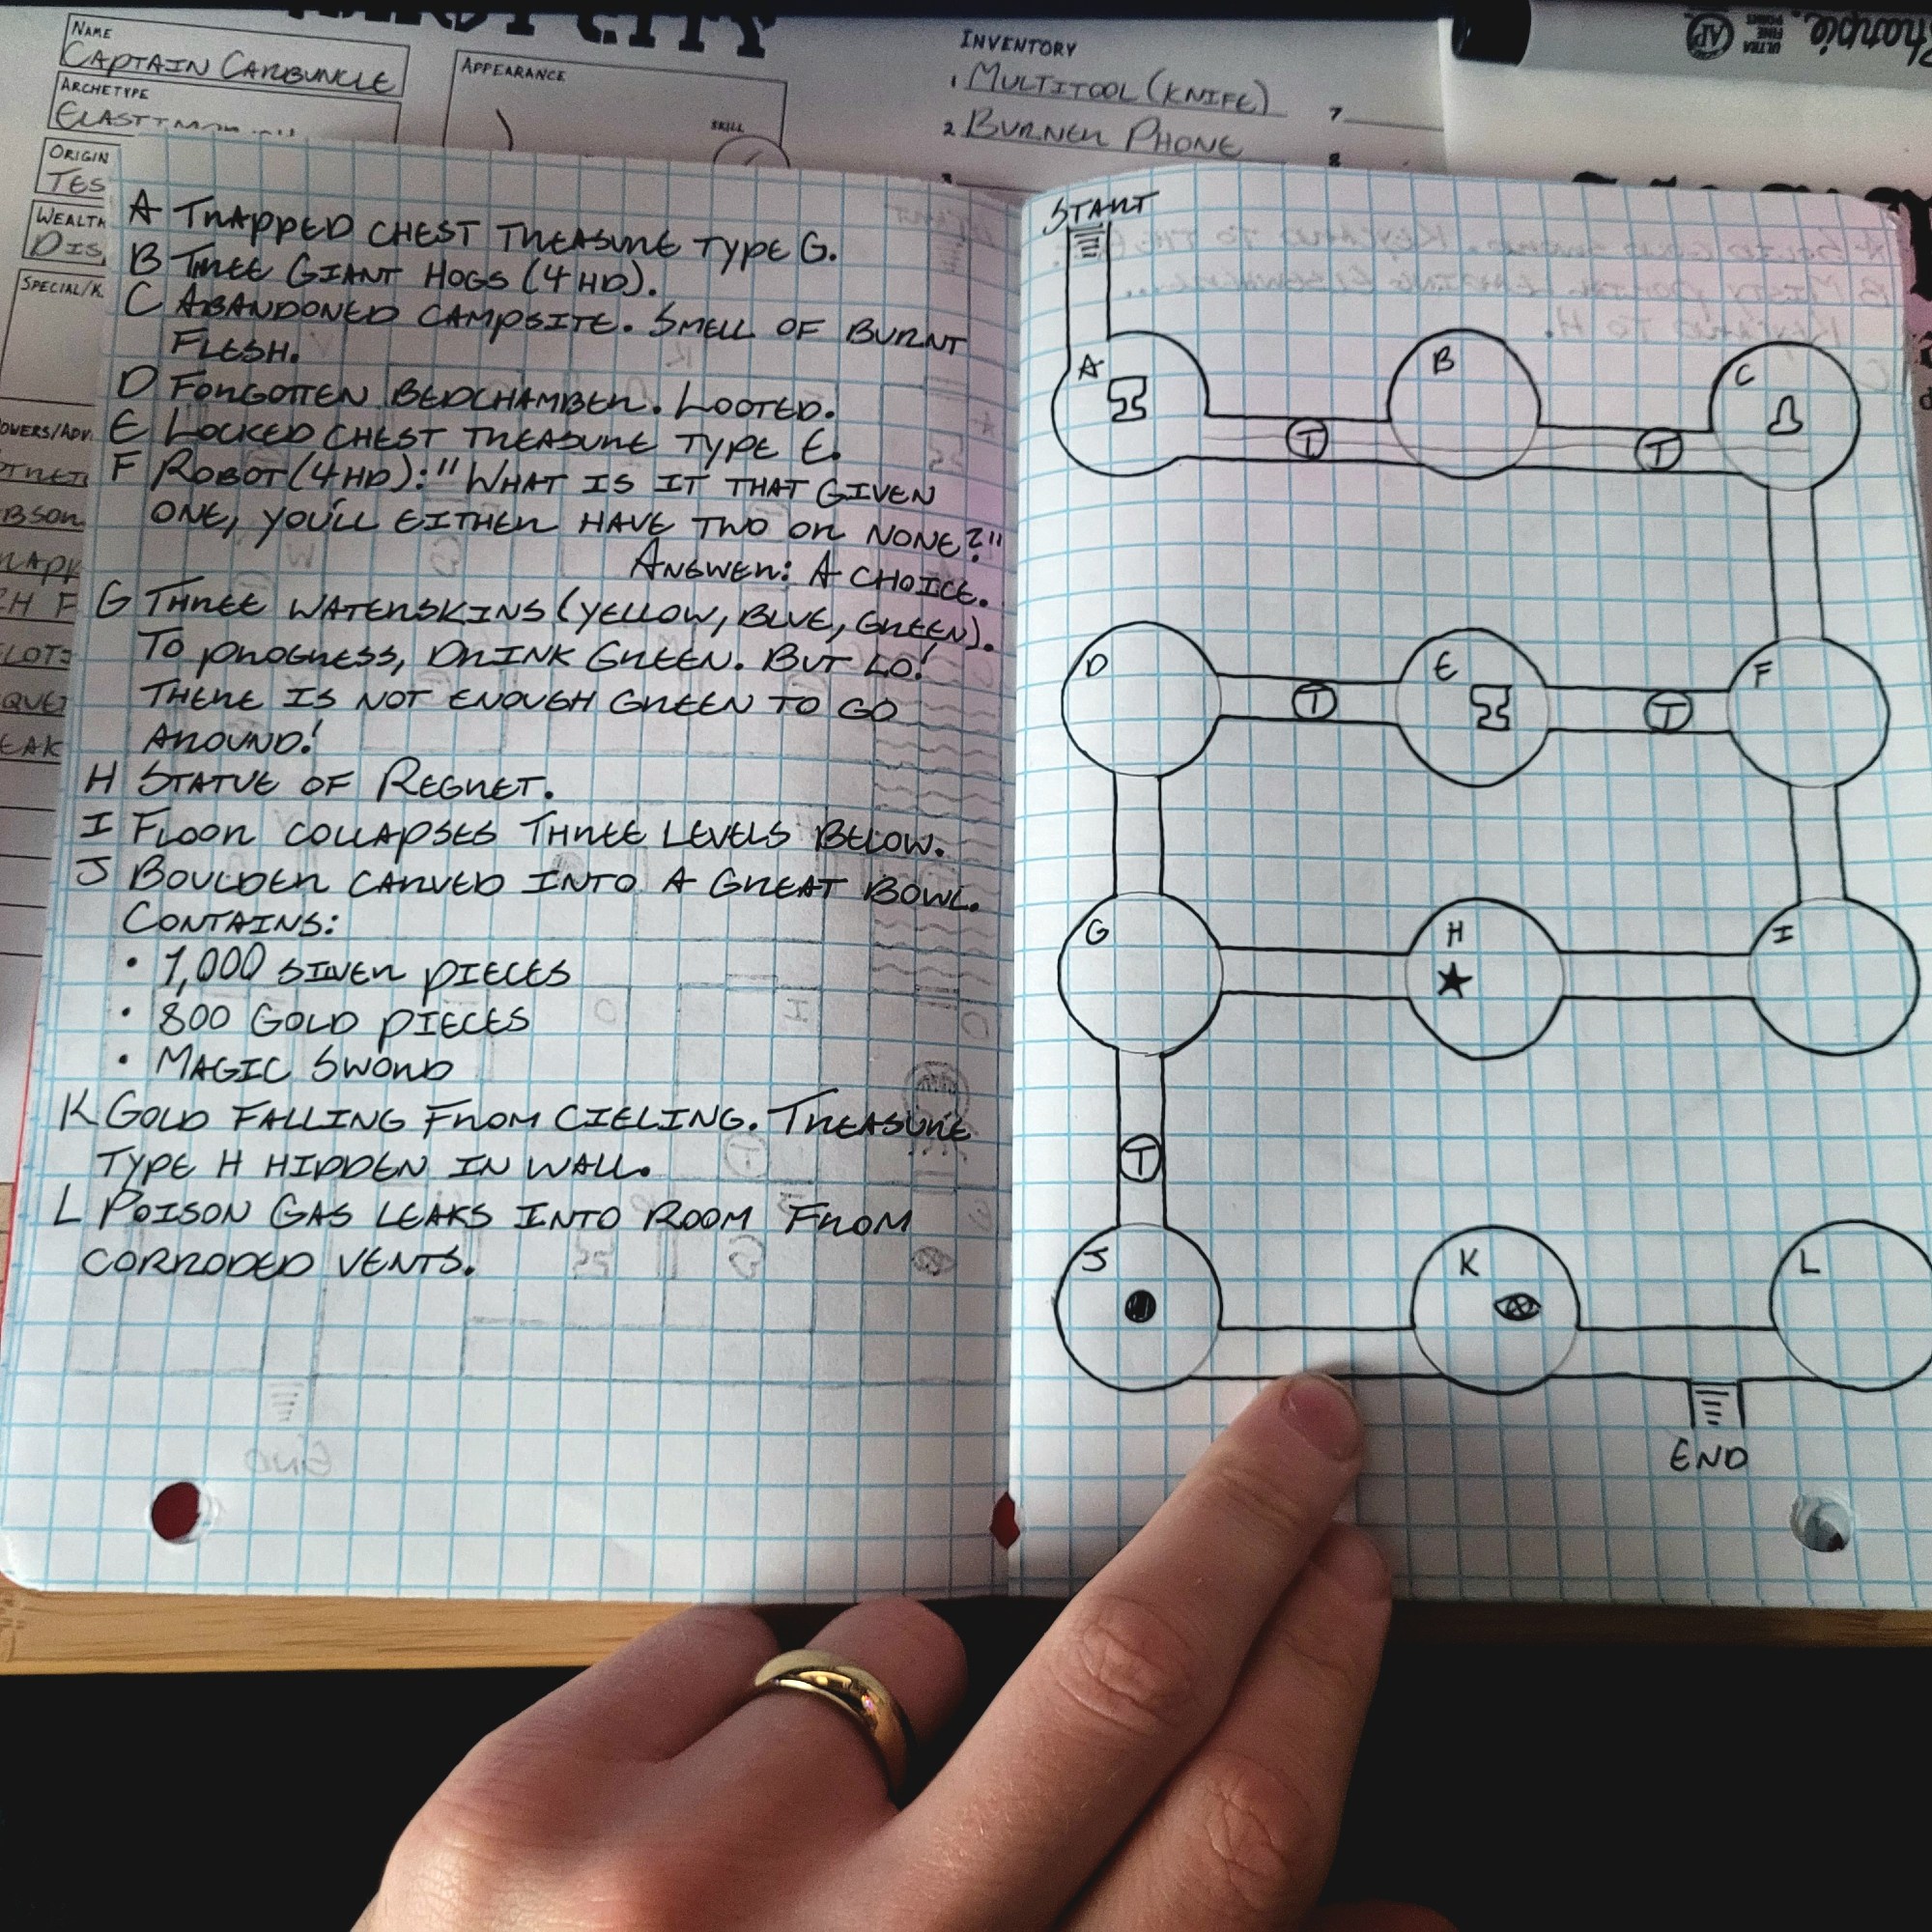 NAME
CAPTAIN CARBUNCLE
ARCHETYPE
ORIGIN
WEALTH
APPEARANCE
SKILL
INVENTORY
1 MULTITOOL (KNIFE)
2 BURNER PHONE
3
7
8
Sharpie.
ULTRA FINE POINT
AP
A TRAPPED CHEST TREASURE TYPE G.
B THREE GIANT HOGS (4 HD).
C ABANDONED CAMPSITE. SMELL OF BURNT
FLESH.
D FORGOTTEN BEDCHAMBER. LOOTED.
E LOCKED CHEST TREASURE TYPE E.
F ROBOT (4 HD): "WHAT IS IT THAT GIVEN
ONE, YOU'LL EITHER HAVE TWO OR NONE?"
ANSWER: A CHOICE.
G THREE WATERSKINS (YELLOW, BLUE, GREEN).
TO PROGRESS, DRINK GREEN. BUT LO!
THERE IS NOT ENOUGH GREEN TO GO
AROUND!
H STATUE OF REGRET.
I FLOOR COLLAPSES THREE LEVELS BELOW.
J BOULDER CARVED INTO A GREAT BOWL.
CONTAINS:
• 1,000 SILVER PIECES
• 800 GOLD PIECES
• MAGIC SWORD
K GOLD FALLING FROM CIELING. TREASURE
TYPE H HIDDEN IN WALL.
L POISON GAS LEAKS INTO ROOM FROM
CORRODED VENTS.
START
A
B
C
T
T
D
E
F
T
T
G
H
I
T
J
K
L
END